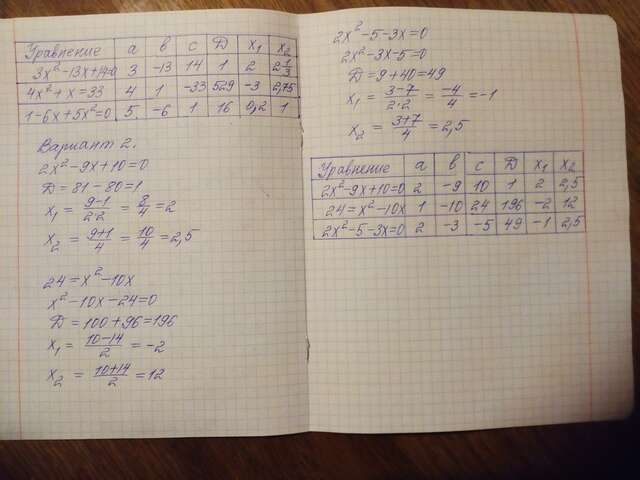 Уравнение a в c D x₁ x₂
3x²-13x+14=0 3 -13 14 1 2 2 1/3
4x²+x=33 4 1 -33 529 -3 2,75
1-6x+5x²=0 5 -6 1 16 0,2 1
Вариант 2.
2x²-9x+10=0
D=81-80=1
x₁ = (9-1)/(2·2) = 8/4 = 2
x₂ = (9+1)/4 = 10/4 = 2,5
24=x²-10x
x²-10x-24=0
D=100+96=196
x₁ = (10-14)/2 = -2
x₂ = (10+14)/2 = 12
2x²-5-3x=0
2x²-3x-5=0
D=9+40=49
x₁ = (3-7)/(2·2) = -4/4 = -1
x₂ = (3+7)/4 = 2,5
Уравнение a в c D x₁ x₂
2x²-9x+10=0 2 -9 10 1 2 2,5
24=x²-10x 1 -10 24 196 -2 12
2x²-5-3x=0 2 -3 -5 49 -1 2,5